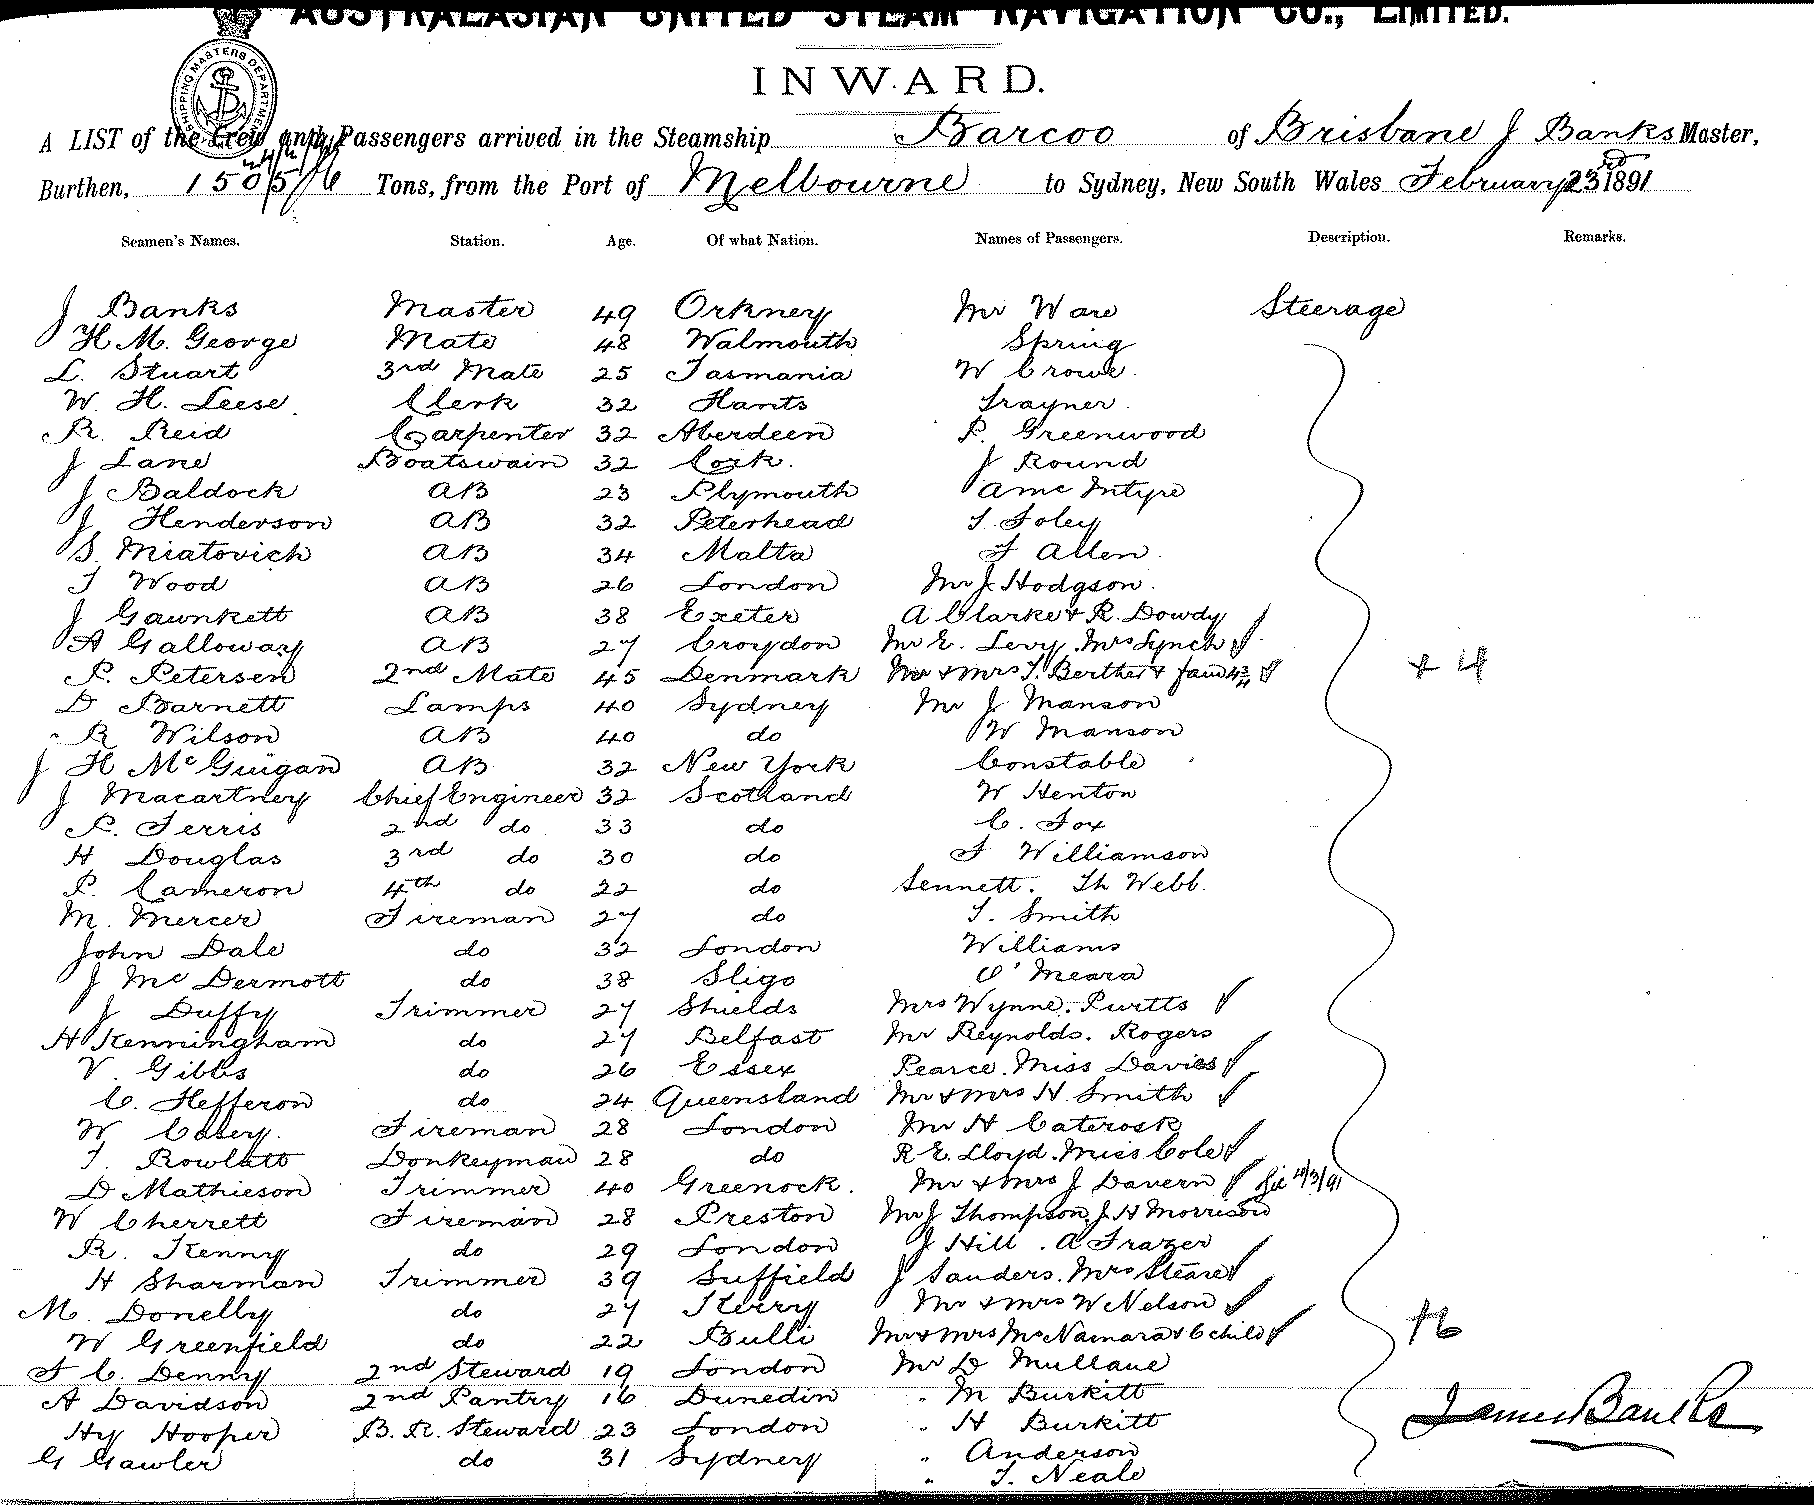 AUSTRALASIAN UNITED STEAM NAVIGATION CO., LIMITED.
SHIPPING MASTERS DEPARTMENT
INWARD.
A LIST of the Crew and Passengers arrived in the Steamship Barcoo of Brisbane J Banks Master,
Burthen, 1505/6 Tons, from the Port of Melbourne to Sydney, New South Wales February 23rd 1891
Seamen's Names. Station. Age. Of what Nation. Names of Passengers. Description. Remarks.
J Banks Master 49 Orkney Mr Ware Steerage
H M. George Mate 48 Walmouth Spring
L. Stuart 3rd Mate 25 Tasmania W Crowe.
W. H. Leese Clerk 32 Hants Trayner.
R. Reid Carpenter 32 Aberdeen P. Greenwood
J Lane Boatswain 32 Cork. J Round
J Baldock AB 23 Plymouth A Mc Intyre
J Henderson AB 32 Peterhead T. Foley
S. Miatovich AB 34 Malta F Allen.
T Wood AB 26 London Mr J. Hodgson.
J Gawnkett AB 38 Exeter A Clarke & R. Dowdy
A Galloway AB 27 Croydon Mr E. Levy. Mrs Lynch
P. Petersen 2nd Mate 45 Denmark Mr & Mrs T. Berther & fam + 4
D Barnett Lamps 40 Sydney Mr J Manson
R Wilson AB 40 do W Manson
J H McGuigan AB 32 New York Constable
J Macartney Chief Engineer 32 Scotland W Henton
P. Ferris 2nd do 33 do C. Fox
H Douglas 3rd do 30 do F Williamson
P. Cameron 4th do 22 do Sennett. Th Webb.
M. Mercer Fireman 27 do T. Smith
John Dale do 32 London Williams
J McDermott do 38 Sligo O'Meara
J Duffy Trimmer 27 Shields Mrs Wynne. Purtts
H Kenningham do 27 Belfast Mr Reynolds. Rogers
V. Gibbs do 26 Essex Pearce. Miss Davies
C. Hefferon do 24 Queensland Mr & Mrs H. Smith
W Casey. Fireman 28 London Mr H Caterosk
T. Rowlatt Donkeyman 28 do R E. Lloyd. Miss Cole
D Mathieson Trimmer 40 Greenock. Mr & Mrs J Davern 4/3/91
W Cherrett Fireman 28 Preston Mr J Thompson. J H Morrison
R. Kenny do 29 London J Hill. A Frazer
H Sharman Trimmer 39 Suffield J Sanders. Mrs Steare
M. Donelby do 27 Kerry Mr & Mrs W Nelson
W Greenfield do 22 Bulli Mr & Mrs McNamara & Child +6
F C. Denny 2nd Steward 19 London Mr D Mullane
A Davidson 2nd Pantry 16 Dunedin " M Burkitt
Hy Hooper B. R. Steward 23 London " H Burkitt James Banks
G Gawler do 31 Sydney " Anderson
" T. Neale